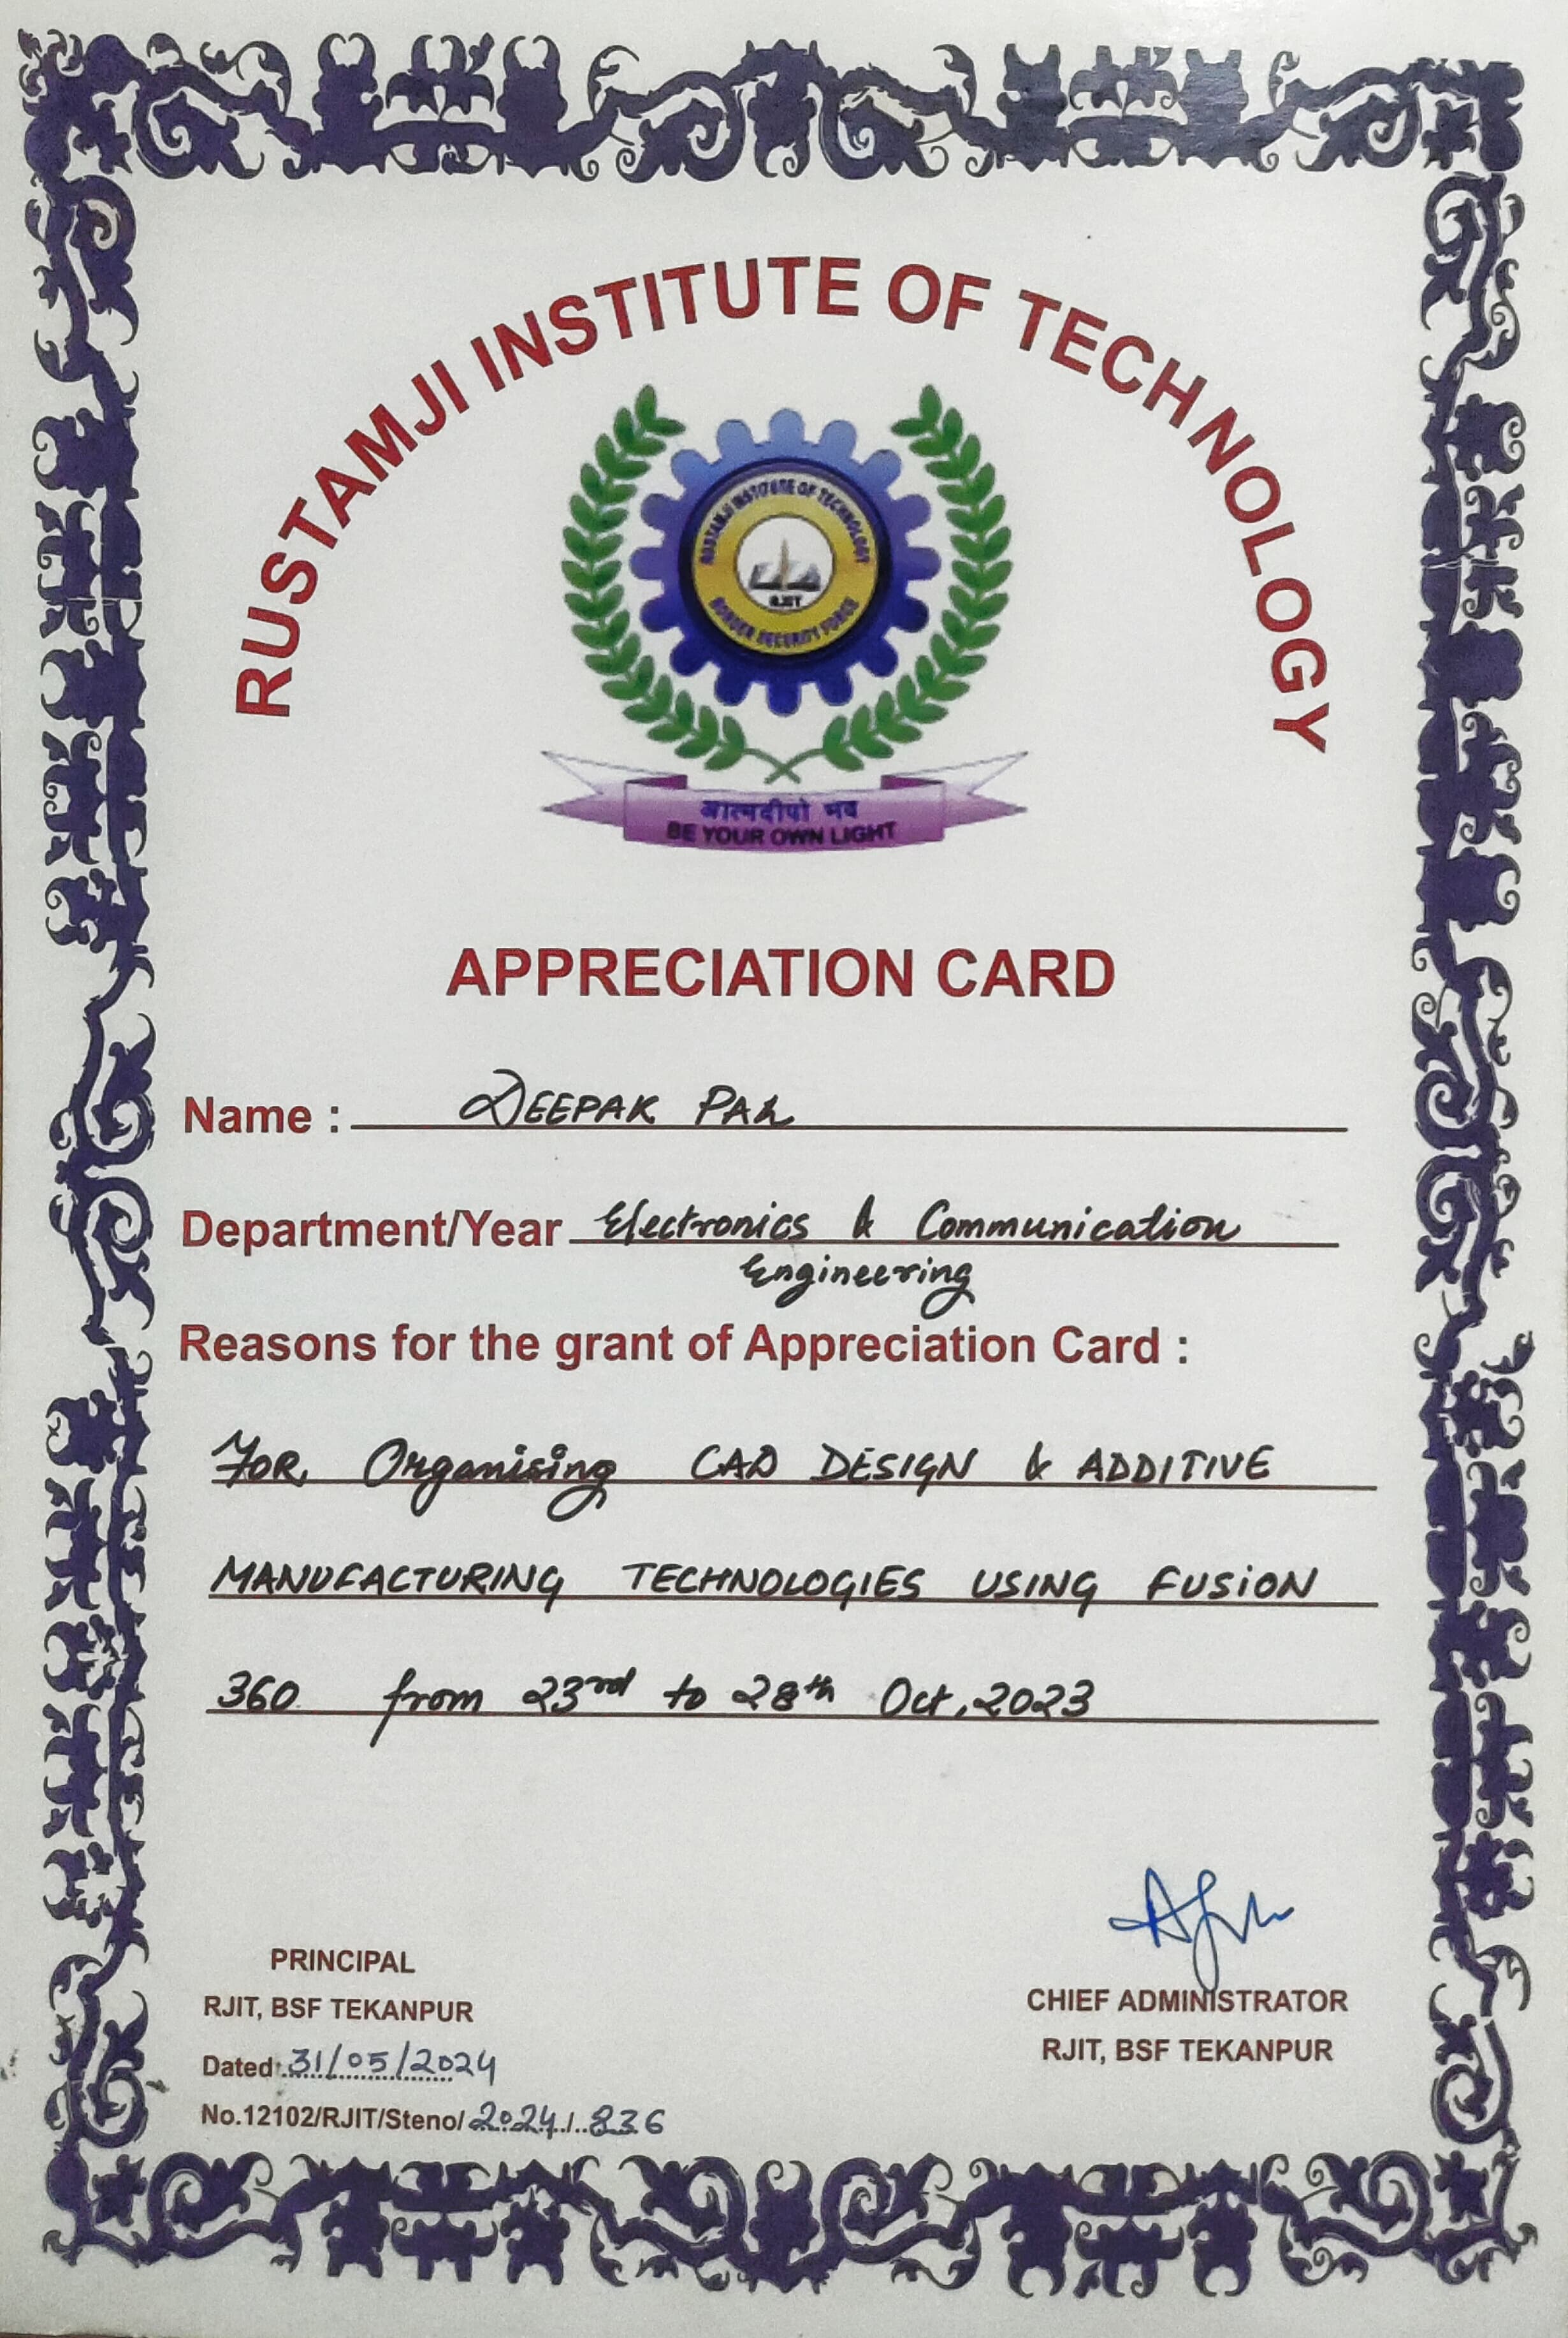 RUSTAMJI INSTITUTE OF TECHNOLOGY
RUSTAMJI INSTITUTE OF TECHNOLOGY
RJIT
BORDER SECURITY FORCE
आत्मदीपो भव
BE YOUR OWN LIGHT
APPRECIATION CARD
Name : DEEPAK PAL
Department/Year Electronics & Communication
Engineering
Reasons for the grant of Appreciation Card :
FOR Organising CAD DESIGN & ADDITIVE
MANUFACTURING TECHNOLOGIES USING FUSION
360 from 23rd to 28th Oct, 2023
PRINCIPAL
RJIT, BSF TEKANPUR
Dated:.31/05/2024
No.12102/RJIT/Steno/2024/..836
CHIEF ADMINISTRATOR
RJIT, BSF TEKANPUR